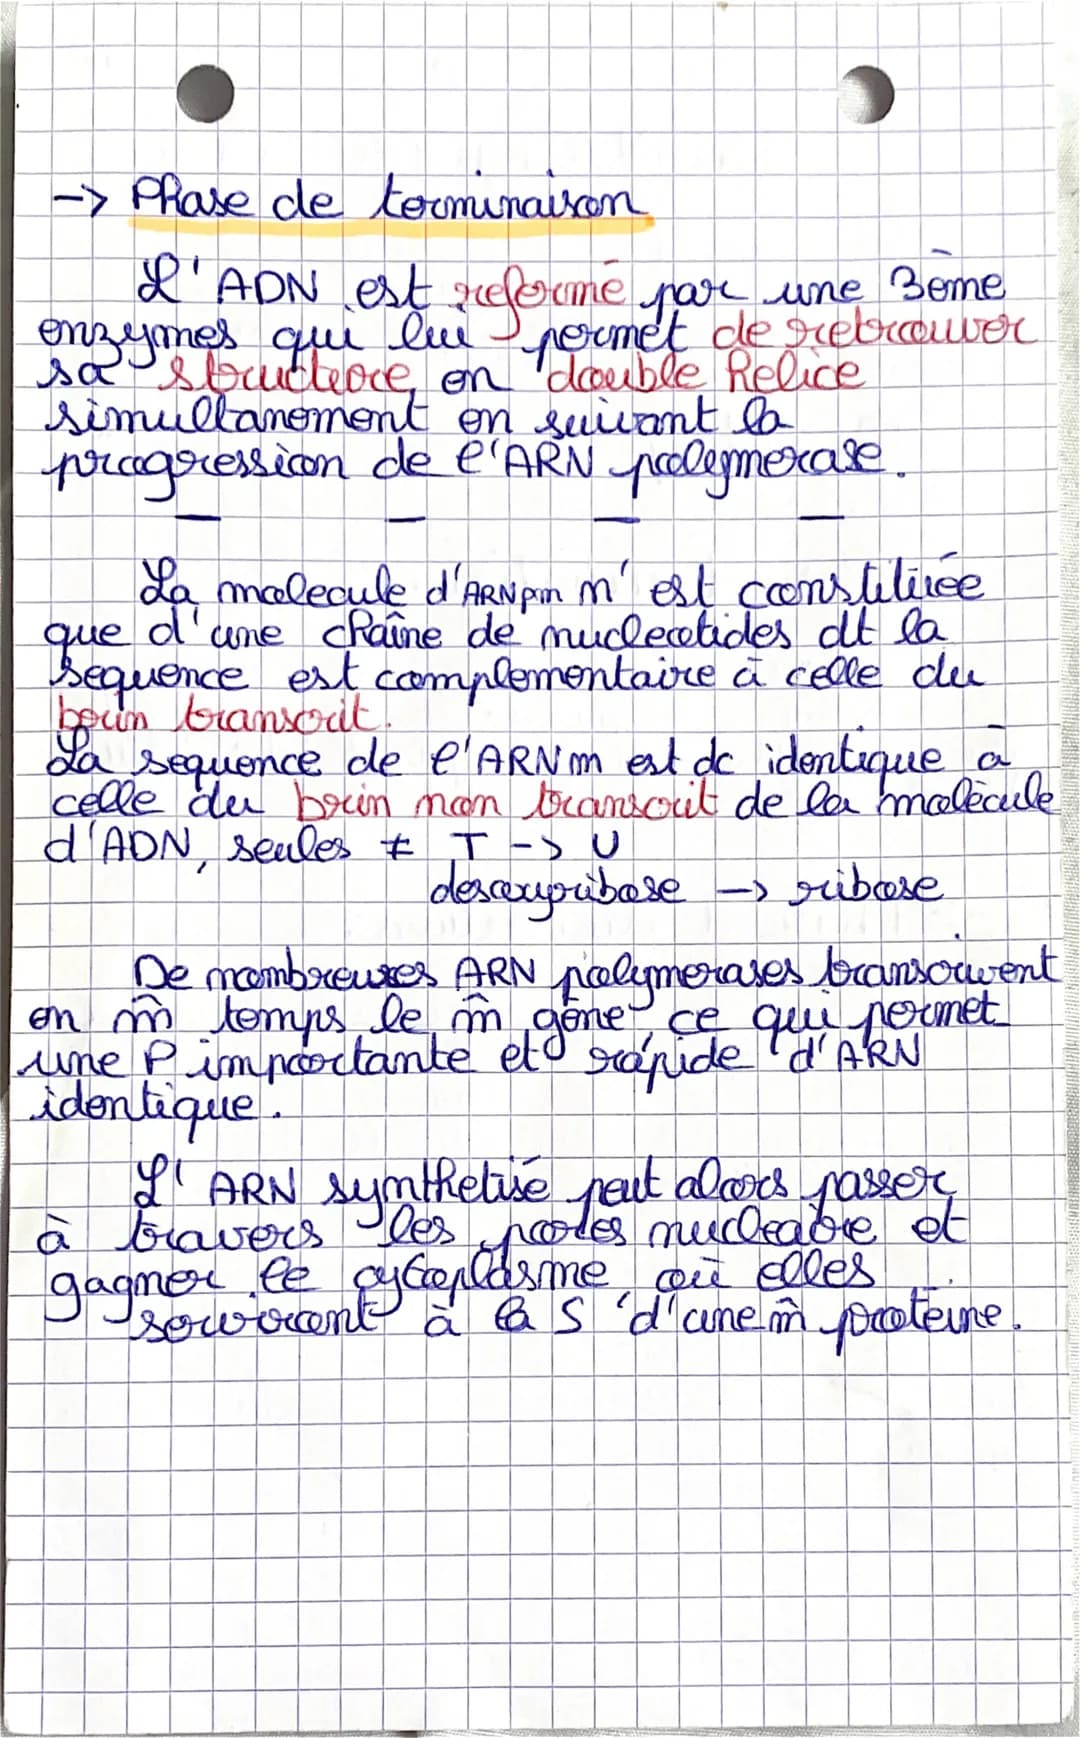 -> Phase de terminaison
L'ADN est reformé par une 3ème
enzymes qui lui permet de retrouver
sa structure en double helice
simultanement en suivant la
progression de l'ARN polymerase.
La molecule d'ARNpm n'est constituée
que d'une chaîne de nucleotides dt la
sequence est complementaire à celle du
brin transcrit.
La sequence de l'ARNm est dc identique à
celle du brin non transcrit de la molècule
d'ADN, seules ≠ T -> U
desoxyribose -> ribose
De nombreuses ARN polymerases transcrivent
en m̂ temps le m̂ gène, ce qui permet
une P importante et rapide d'ARN
identique.
L'ARN synthetisé peut alors passer
à travers les pores nucleaire et
gagner le cytoplasme où elles
serviront à la S d'une m̂ proteine.